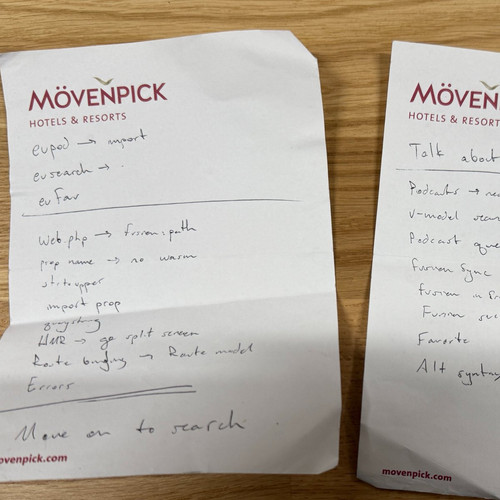 MÖVENPICK
HOTELS & RESORTS
evpod → import
evsearch →
evfav
Web.php → fusion:path
prop name → no warm
import prop
HMR → go split screen
Route binding → Route model
Errors
Move on to search
ovenpick.com
MÖVEN
HOTELS & RESORT
Talk about
Podcasts →
v-model sear
Podcast que
Fusion Sync
Fusion in
Fusion
Favorite
Alt syntax
movenpick.com